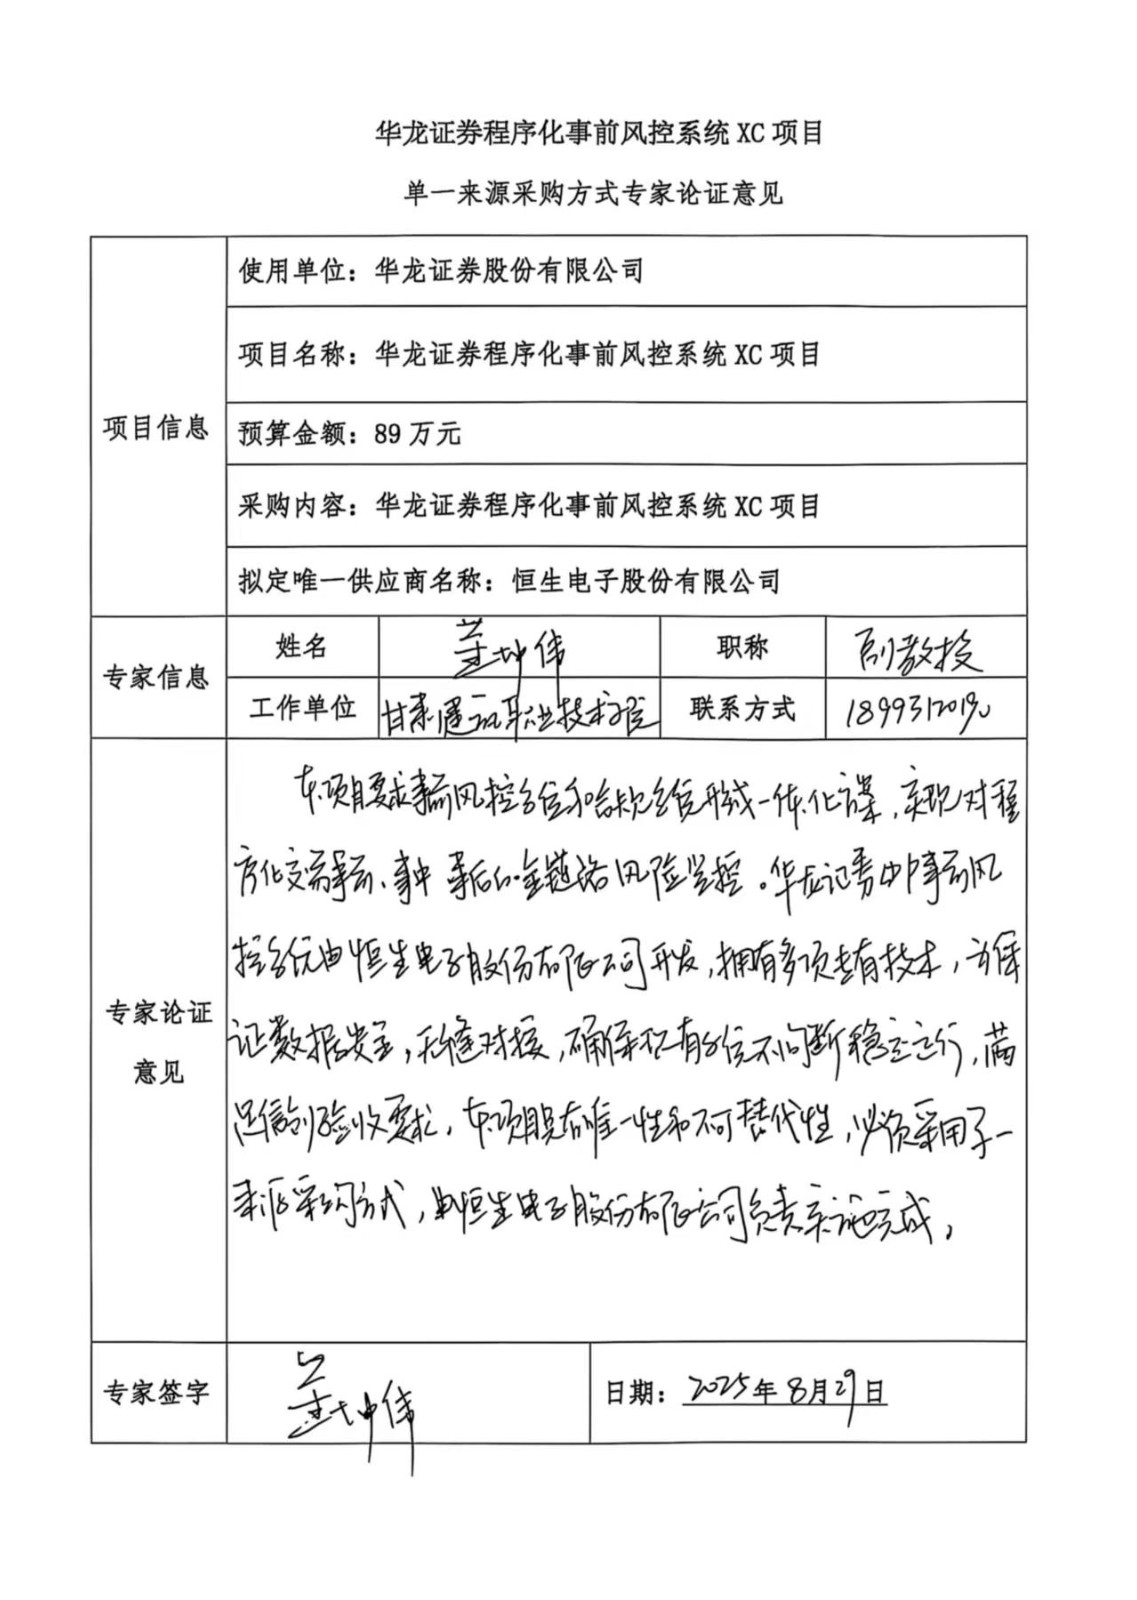 华龙证券程序化事前风控系统 XC 项目
单一来源采购方式专家论证意见
项目信息
使用单位：华龙证券股份有限公司
项目名称：华龙证券程序化事前风控系统 XC 项目
预算金额：89 万元
采购内容：华龙证券程序化事前风控系统 XC 项目
拟定唯一供应商名称：恒生电子股份有限公司
专家信息
姓名 董坤伟 职称 副教授
工作单位 甘肃 职业技术学院 联系方式
专家论证意见
本项目要求事前风控系统和 系统形成一体化 ，实现对程
序化交易事前、事中 事后的全链路风险监控。华龙证券 事前风
控系统由恒生电子股份有限公司开发，拥有多项专有技术，
证数据安全，无缝对接，确保现有系统不间断稳定运行，满
足信创验收要求，本项目具有唯一性和不可替代性，必须采用单一
来源采购方式，由恒生电子股份有限公司负责 完成。
专家签字 董坤伟 日期：2025年8月29日